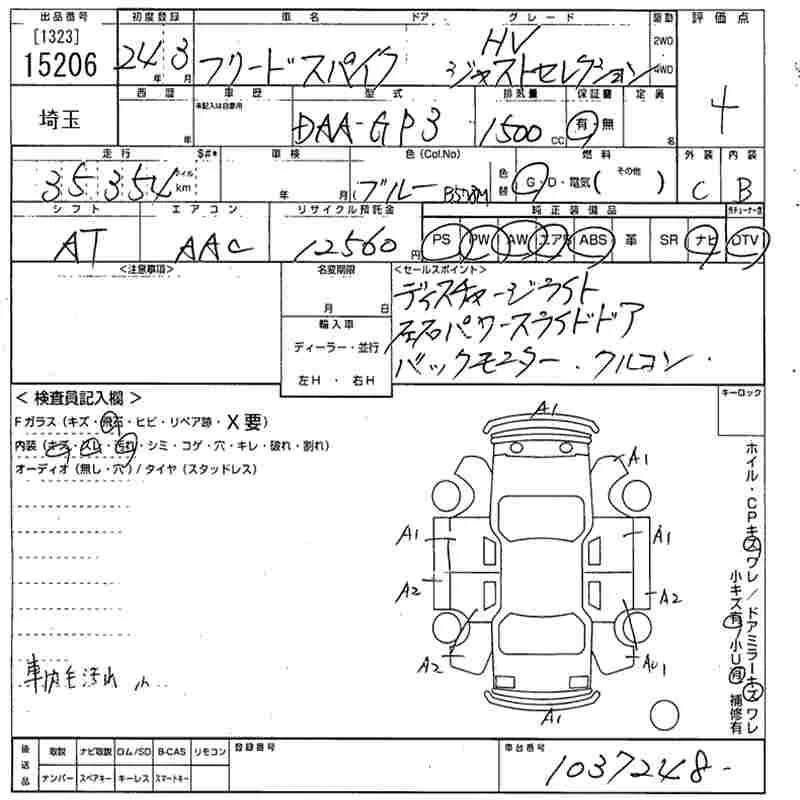 出品番号 初度登録 車名 ドア グレード 駆動 評価点
[1323]
15206 24年3月 フリードスパイク HV ジャストセレクション 2WD 4WD
4
埼玉 西暦 車歴 型式 排気量 保証書 定員
未記入は自家用
年 DAA-GP3 1500cc 有・無 名
走行 $#* 車検 色(Col.No) 燃料 外装 内装
35354 マイル km 年 月( ブルー 色替 G・D・電気( その他 ) C B
シフト エアコン リサイクル預託金 純正装備品
AT AAC 12560円 PS PW AW エアB ABS 革 SR ナビ DTV
<注意事項> 名変期限 <セールスポイント>
月 日
ディスチャージライト
左右パワースライドドア
バックモニター・クルコン・
輸入車
ディーラー・並行
左H・右H
< 検査員記入欄 > キーロック
Fガラス(キズ・飛石・ヒビ・リペア跡・X要)
内装(キズ・スレ・汚れ・シミ・コゲ・穴・キレ・破れ・割れ)
オーディオ(無し・穴)/タイヤ(スタッドレス)
A1
A1
A1 A1
A2 A2
A2 AU1
A1
ホイル・CPキズワレ/ドアミラーキズワレ
小キズ有 小U有 補修有
車内毛汚れ 小
後送品 取説 ナビ取説 ロム/SD B-CAS リモコン 登録番号 車台番号
ナンバー スペアキー キーレス スマートキー 1037248-